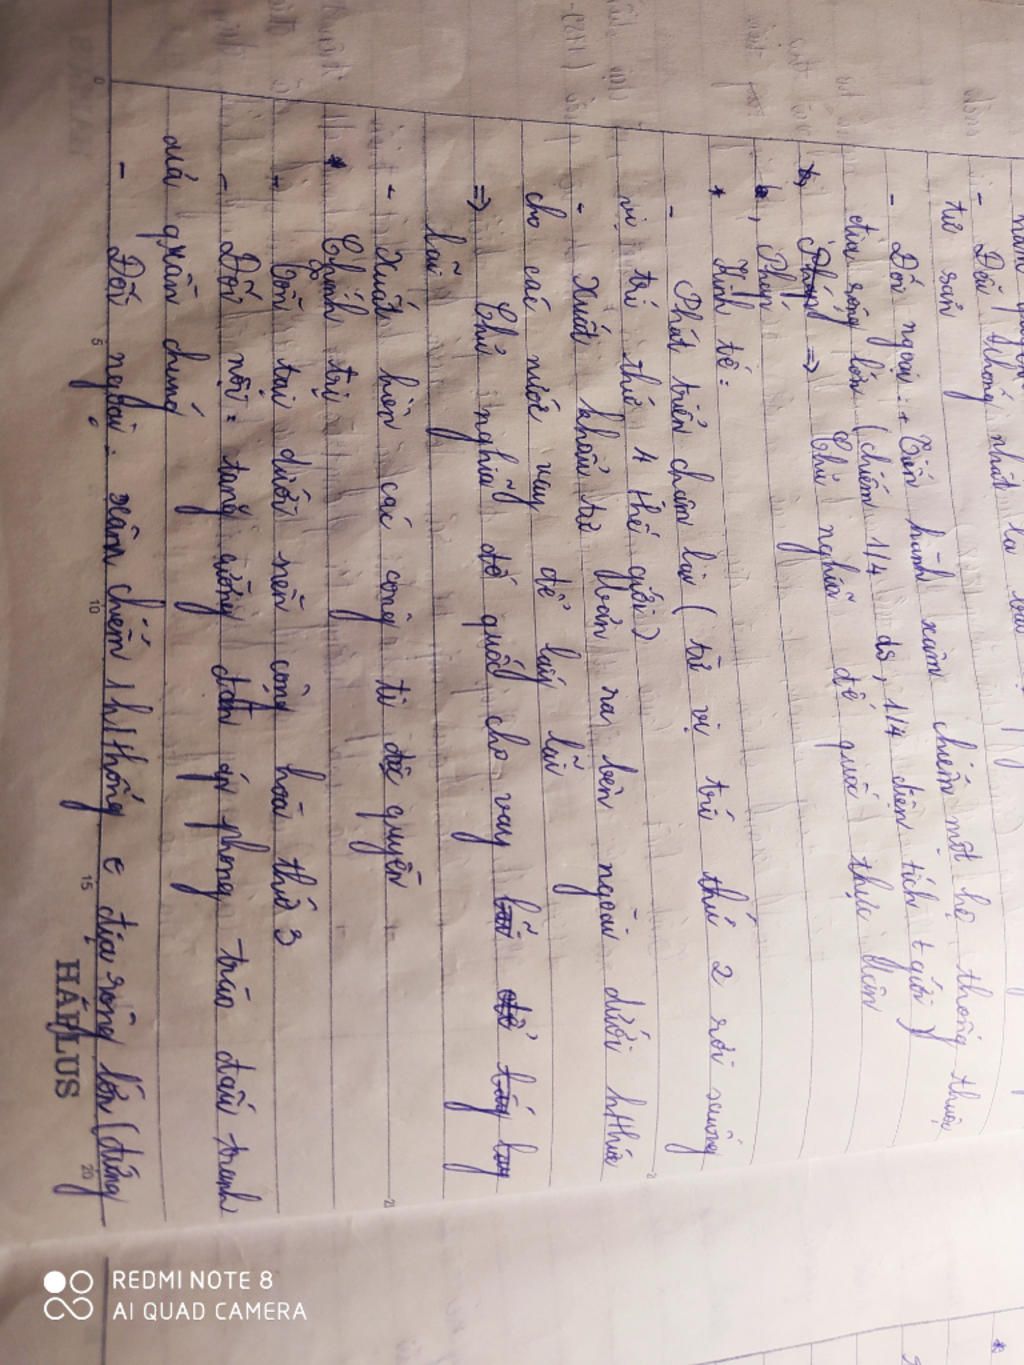 - Đối
tư sản
- Đối ngoại: + Tiến hành xâm chiếm một hệ thống thuộc
địa rộng lớn (chiếm 1/4 ds, 1/4 diện tích t giới)
=> Chủ nghĩa đế quốc thực dân
b, Pháp
* Kinh tế:
- Phát triển chậm lại (từ vị trí thứ 2 rơi xuống
vị trí thứ 4 thế giới)
- Xuất khẩu tư bản ra bên ngoài dưới hthức
cho các nước vay để lấy lãi
=> Chủ nghĩa đế quốc cho vay lấy
lãi
- Xuất hiện các công ti độc quyền
* Chính trị
- Tồn tại dưới nền cộng hòa thứ 3
- Đối nội: tăng cường đàn áp phong trào đấu tranh
quần chúng
- Đối ngoại: xâm chiếm 1 h/thống địa rộng lớn (đứng
0 5 10 15 20
HẢI LUS
REDMI NOTE 8
AI QUAD CAMERA